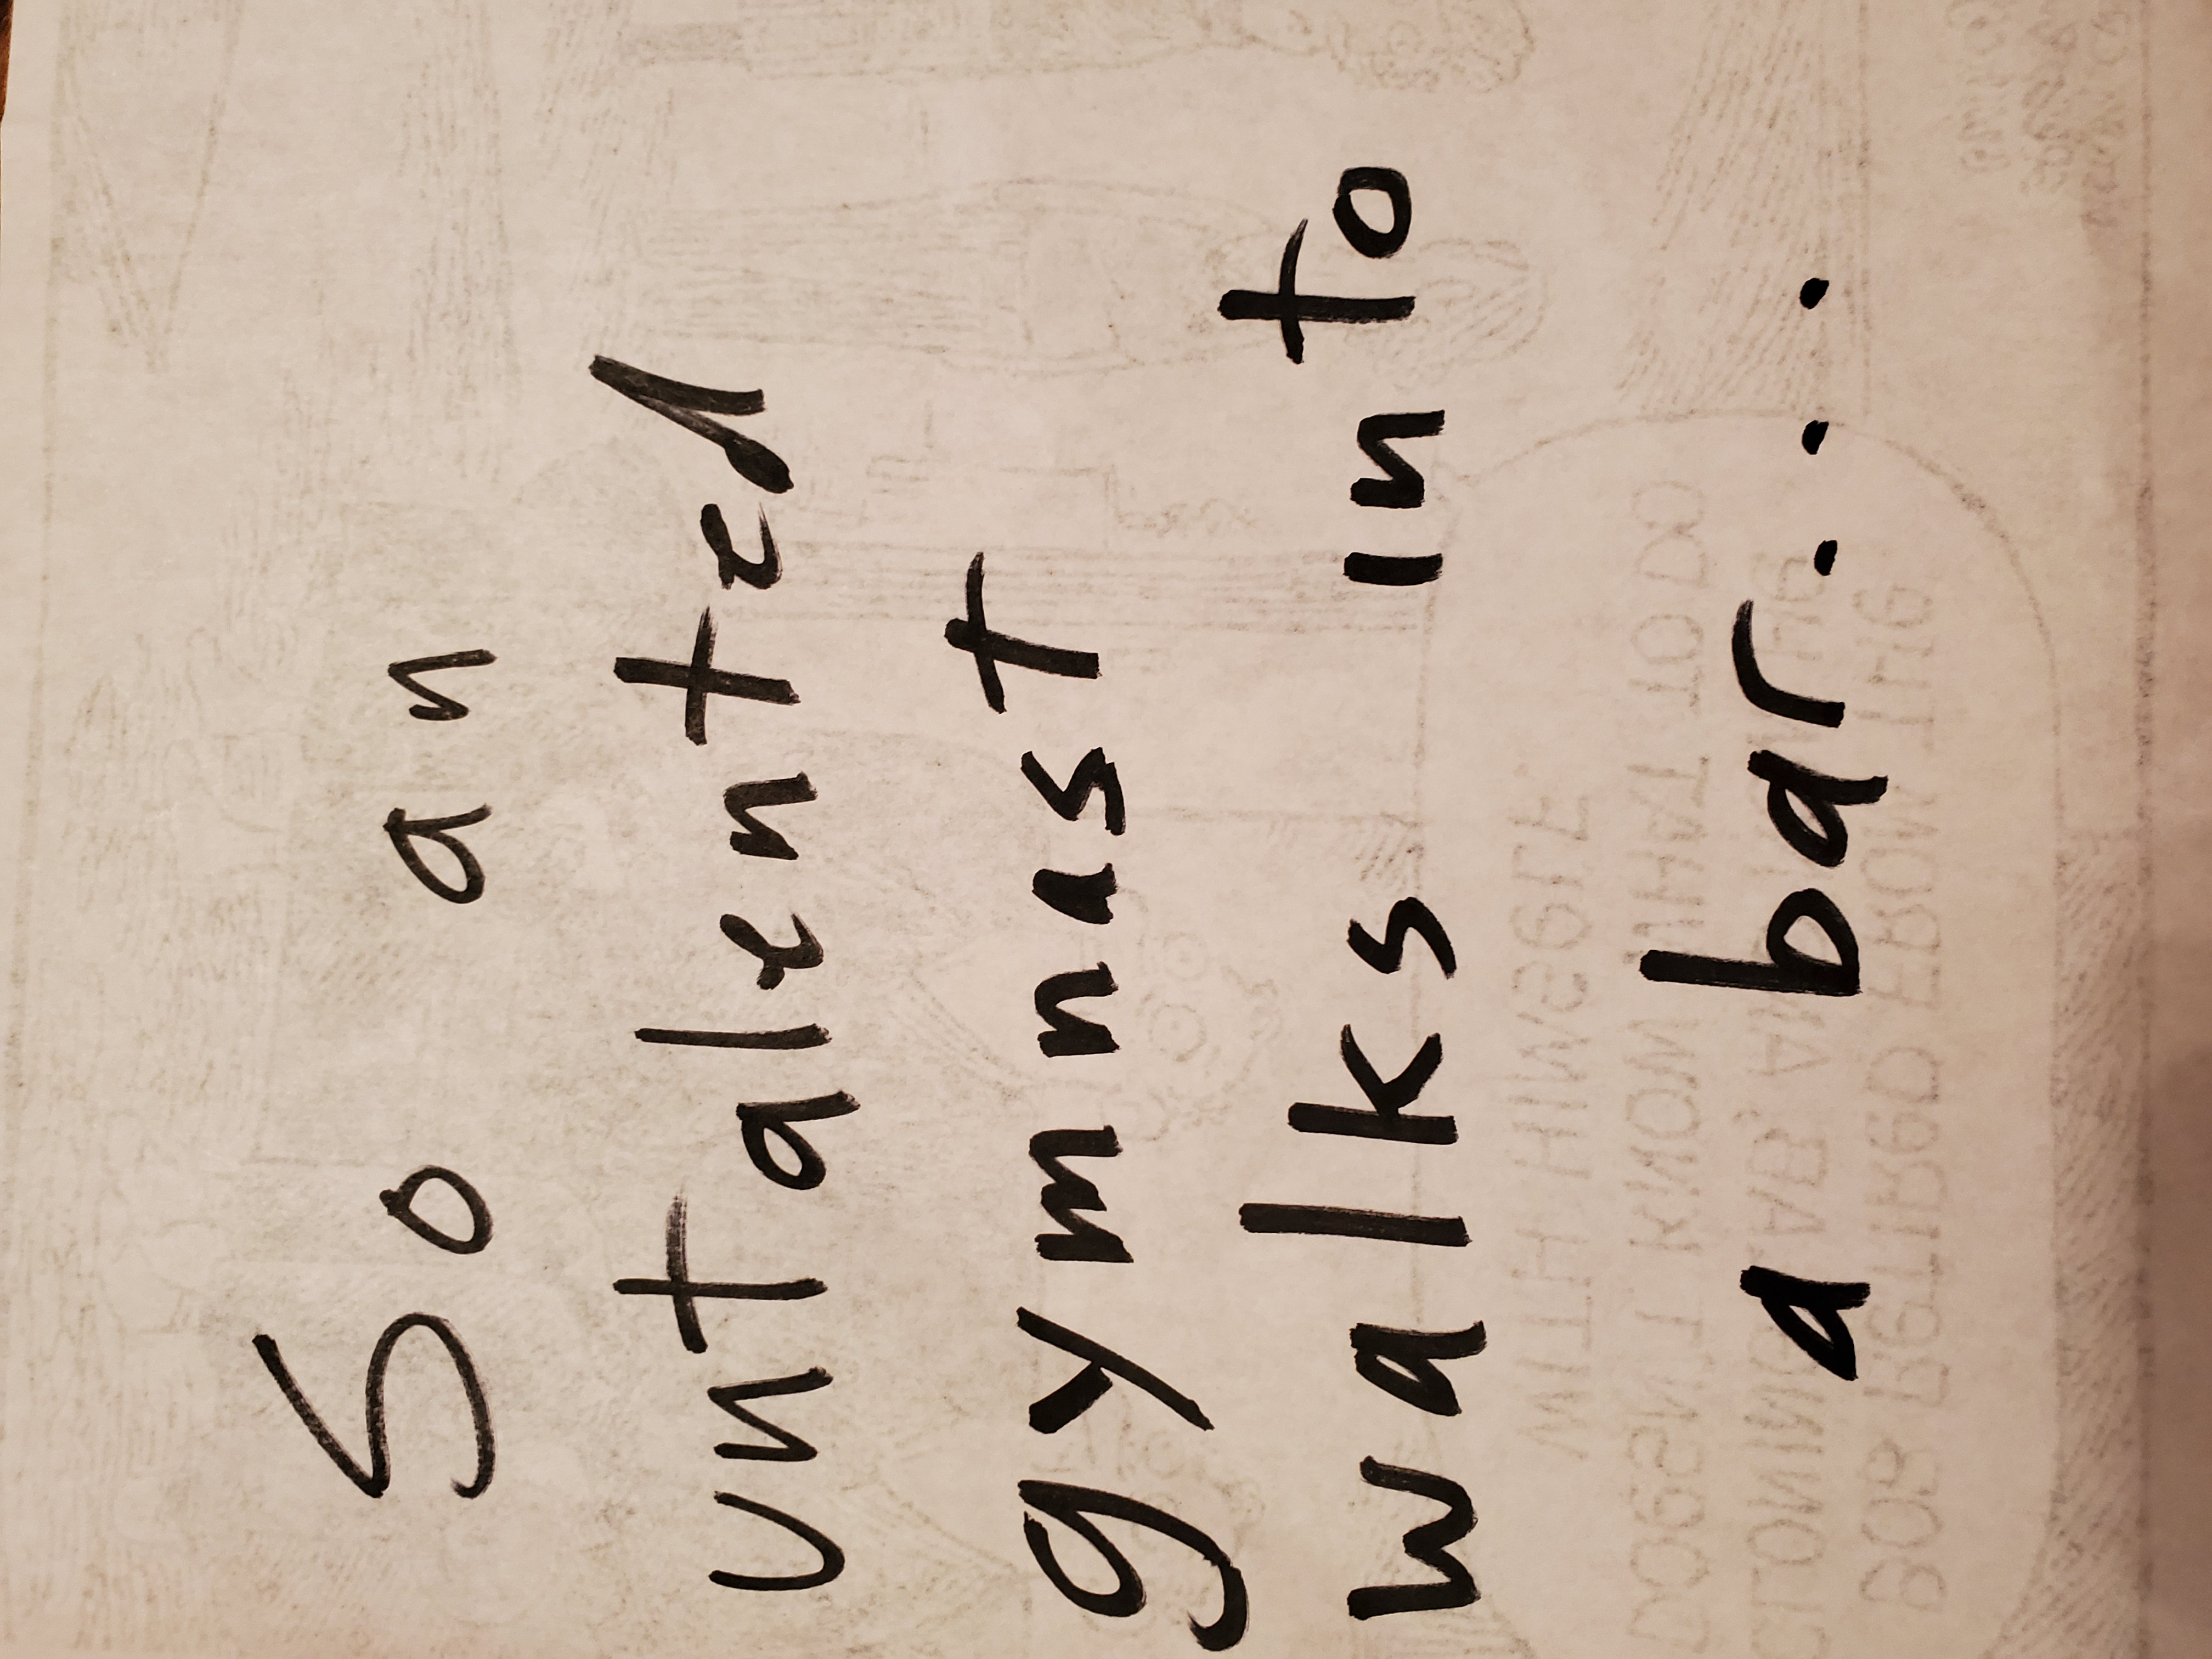 So an
untalented
gymnast
walks into
a bar...